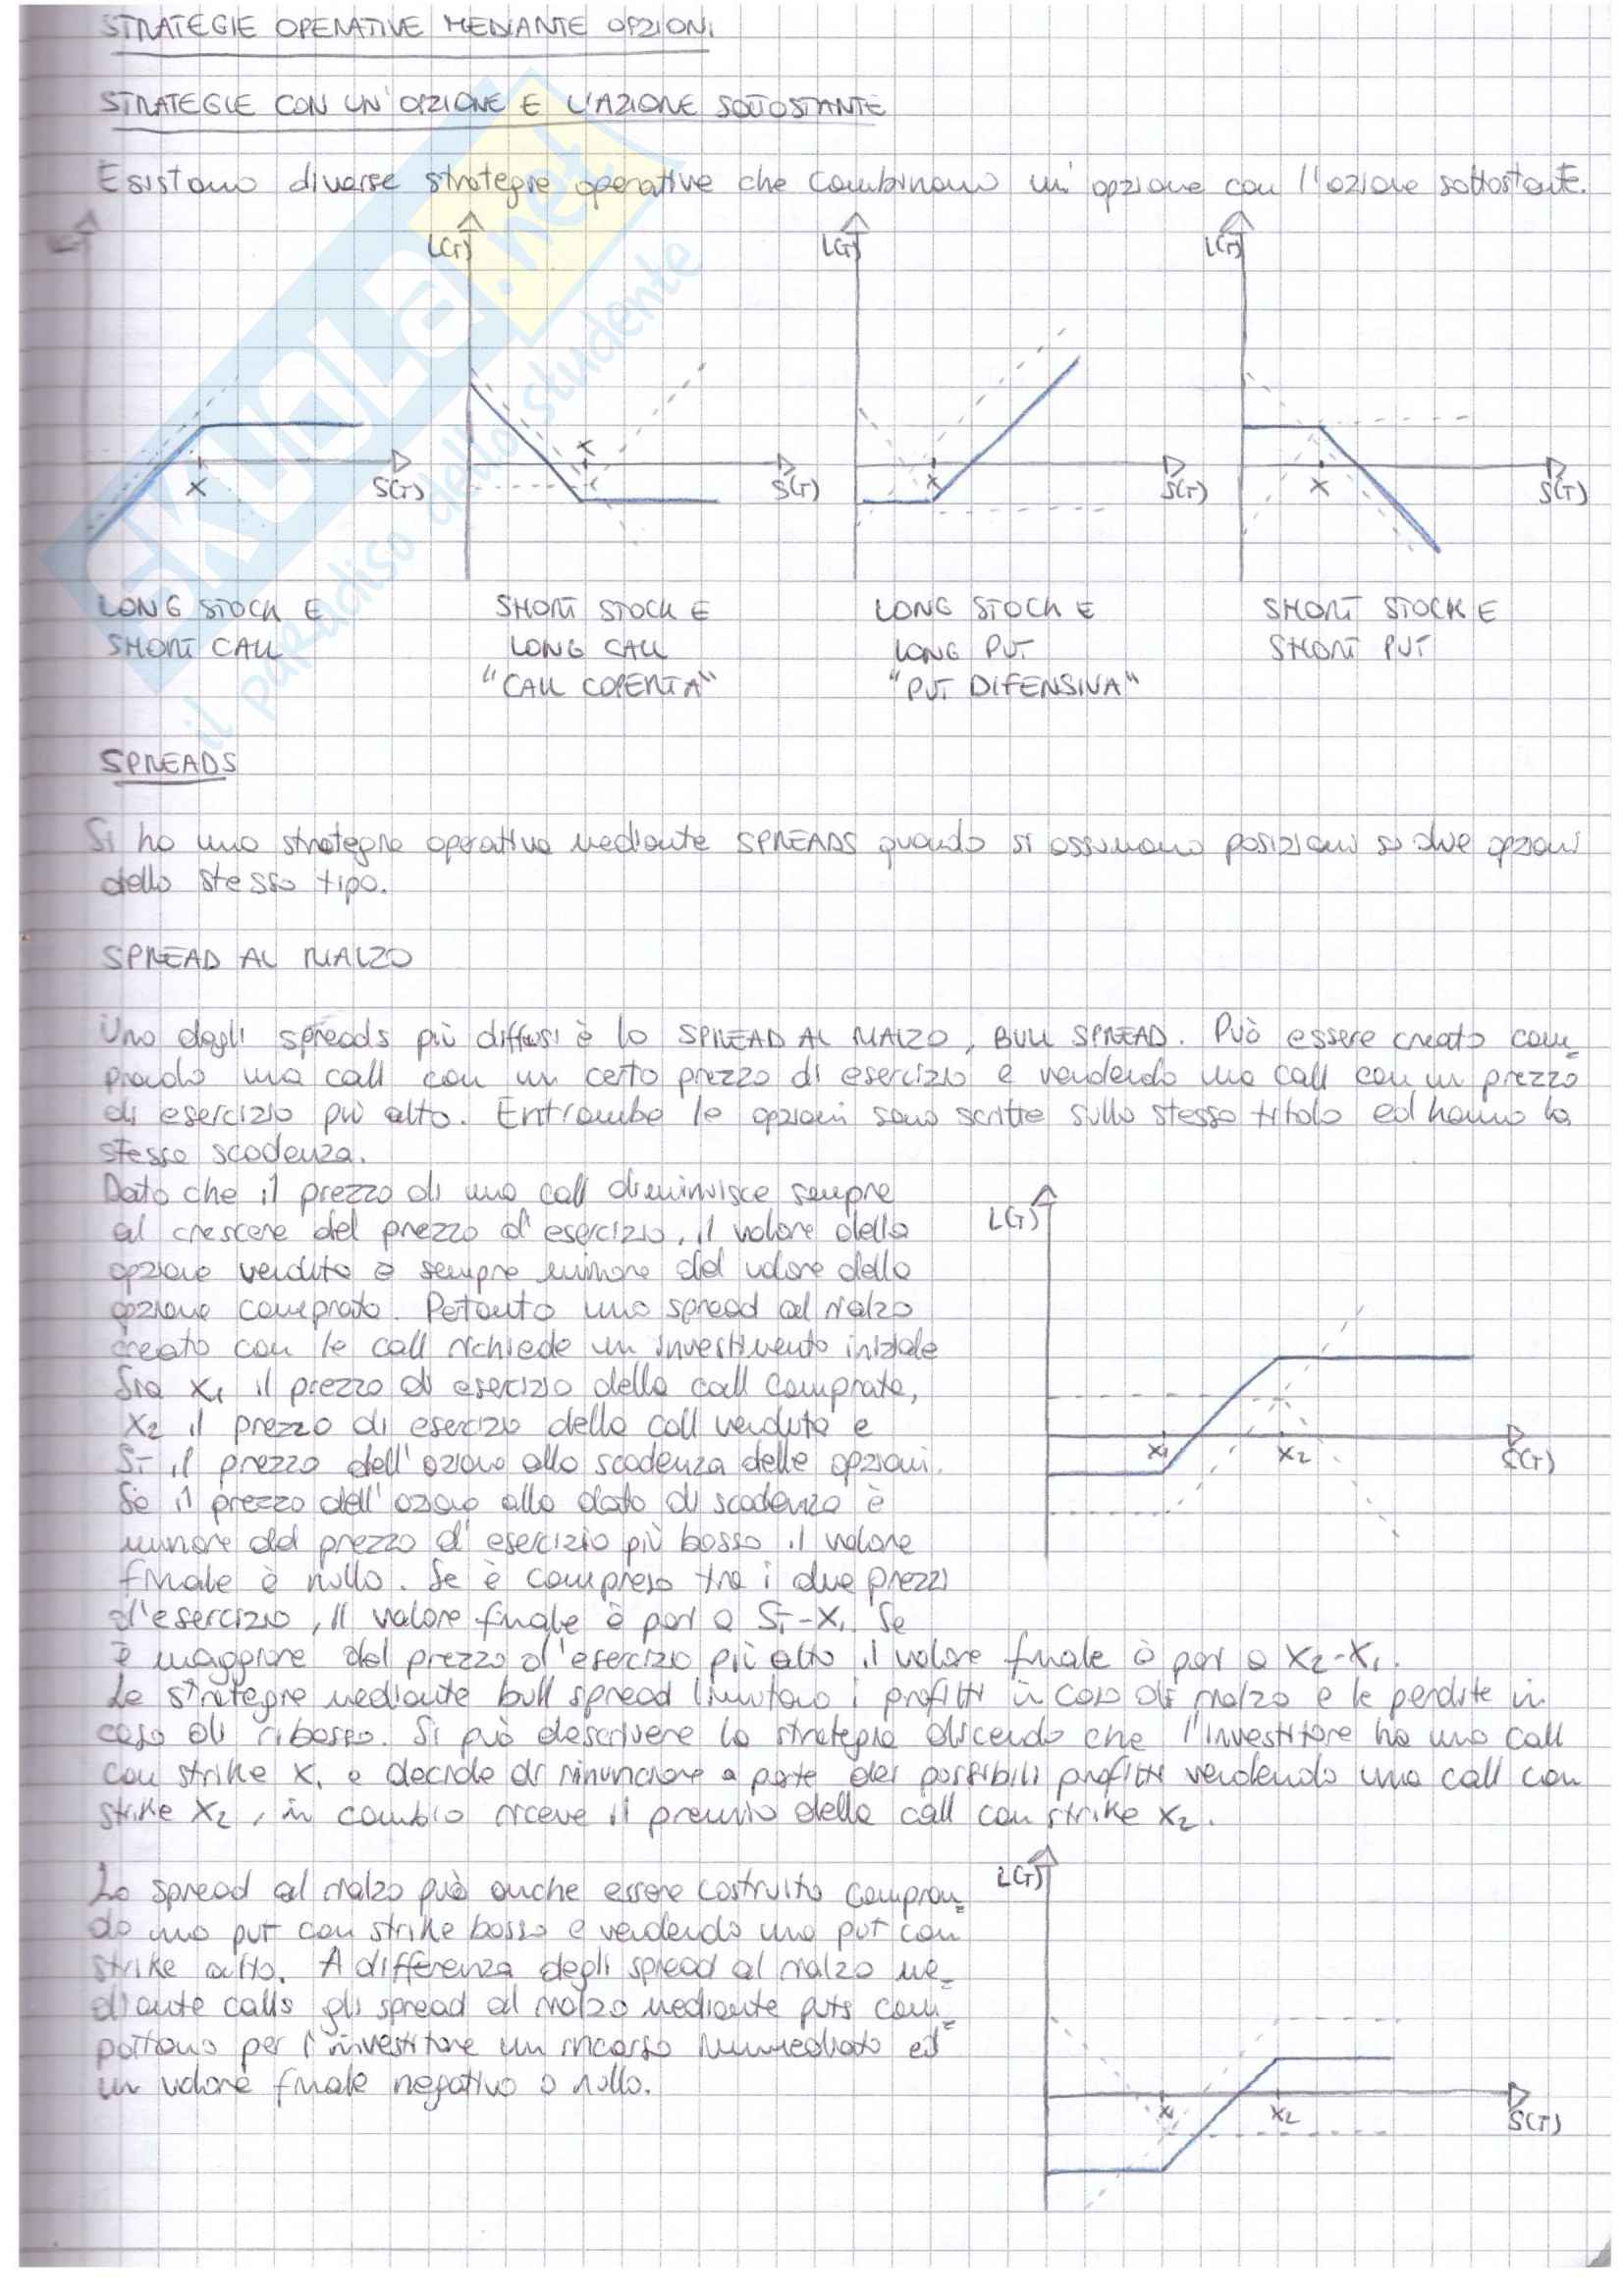 STRATEGIE OPERATIVE MEDIANTE OPZIONI
STRATEGIE CON UN'OPZIONE E L'AZIONE SOTTOSTANTE
Esistono diverse strategie operative che combinano un'opzione con l'azione sottostante.
L(T) L(T) L(T) L(T)
X S(T) X S(T) X S(T) X S(T)
LONG STOCK E SHORT STOCK E LONG STOCK E SHORT STOCK E
SHORT CALL LONG CALL LONG PUT SHORT PUT
"CALL COPERTA" "PUT DIFENSIVA"
SKUOLA.net
il paradiso dello studente
SPREADS
Si ha una strategia operativa mediante SPREADS quando si assumono posizioni su due opzioni
dello stesso tipo.
SPREAD AL RIALZO
Uno degli spreads più diffusi è lo SPREAD AL RIALZO, BULL SPREAD. Può essere creato com=
prando una call con un certo prezzo di esercizio e vendendo una call con un prezzo
di esercizio più alto. Entrambe le opzioni sono scritte sullo stesso titolo ed hanno la
stessa scadenza.
Dato che il prezzo di una call diminuisce sempre
al crescere del prezzo d'esercizio, il valore della
opzione venduta è sempre minore del valore della
opzione comprata. Pertanto uno spread al rialzo
creato con le call richiede un investimento iniziale
Sia X1 il prezzo di esercizio della call comprata,
X2 il prezzo di esercizio della call venduta e
ST il prezzo dell'azione alla scadenza delle opzioni.
Se il prezzo dell'azione alla data di scadenza è
minore del prezzo d'esercizio più basso il valore
finale è nullo. Se è compreso tra i due prezzi
d'esercizio, il valore finale è pari a ST-X1. Se
è maggiore del prezzo d'esercizio più alto il valore finale è pari a X2-X1.
L(T)
X1 X2 S(T)
Le strategie mediante bull spread limitano i profitti in caso di rialzo e le perdite in
caso di ribasso. Si può descrivere la strategia dicendo che l'investitore ha una call
con strike X1 e decide di rinunciare a parte dei possibili profitti vendendo una call con
strike X2, in cambio riceve il premio della call con strike X2.
Lo spread al rialzo può anche essere costruito compran=
do una put con strike basso e vendendo una put con
strike alto. A differenza degli spread al rialzo me=
diante calls gli spread al rialzo mediante puts com=
portano per l'investitore un incasso immediato ed
un valore finale negativo o nullo.
L(T)
X1 X2 S(T)